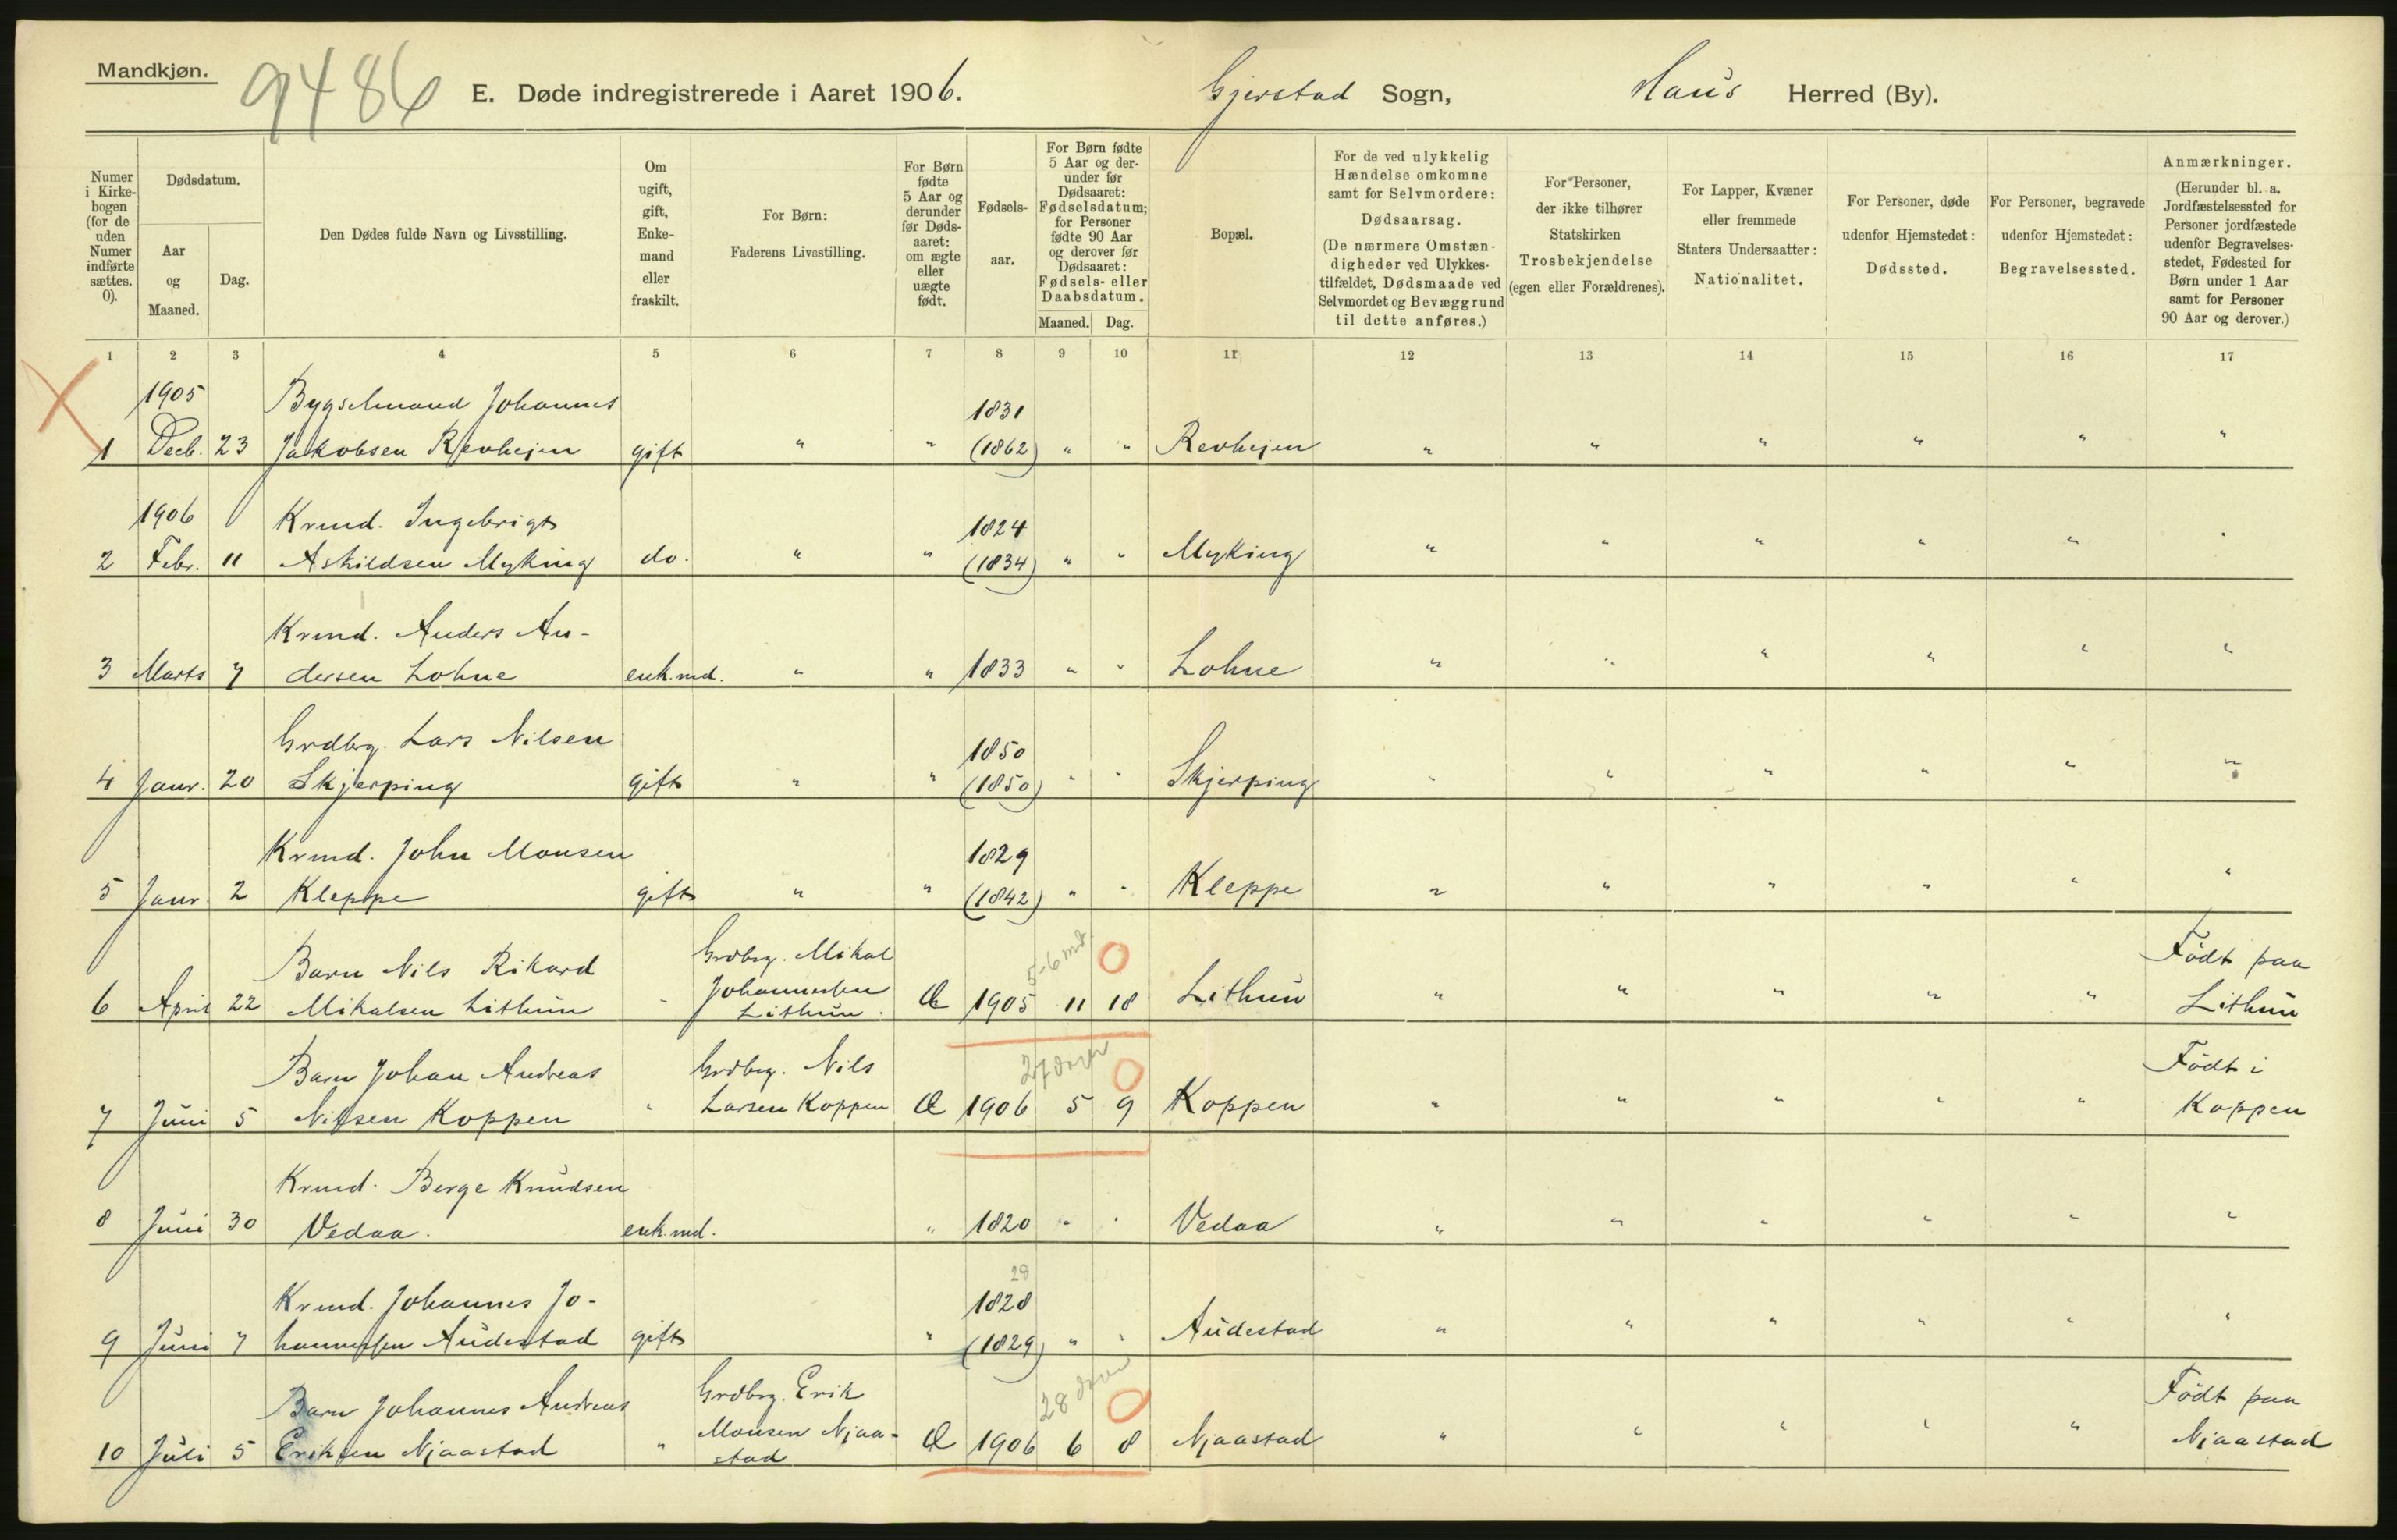 Mandkjøn.
9486
E. Døde indregistrerede i Aaret 1906. Gjerstad Sogn, Haus Herred (By).
Numer i Kirkebogen (for de uden Numer indførte sættes. 0).
Dødsdatum.
Aar og Maaned.
Dag.
Den Dødes fulde Navn og Livsstilling.
Om ugift, gift, Enkemand eller fraskilt.
For Børn: Faderens Livsstilling.
For Børn fødte 5 Aar og derunder før Dødsaaret: om ægte eller uægte født.
Fødselsaar.
For Børn fødte 5 Aar og derunder før Dødsaaret: Fødselsdatum; for Personer fødte 90 Aar og derover før Dødsaaret: Fødsels- eller Daabsdatum.
Maaned. Dag.
Bopæl.
For de ved ulykkelig Hændelse omkomne samt for Selvmordere: Dødsaarsag. (De nærmere Omstændigheder ved Ulykkestilfældet, Dødsmaade ved Selvmordet og Bevæggrund til dette anføres.)
For Personer, der ikke tilhører Statskirken Trosbekjendelse (egen eller Forældrenes).
For Lapper, Kvæner eller fremmede Staters Undersaatter: Nationalitet.
For Personer, døde udenfor Hjemstedet: Dødssted.
For Personer, begravede udenfor Hjemstedet: Begravelsessted.
Anmærkninger. (Herunder bl. a. Jordfæstelsessted for Personer jordfæstede udenfor Begravelsesstedet, Fødested for Børn under 1 Aar samt for Personer 90 Aar og derover.)
1 2 3 4 5 6 7 8 9 10 11 12 13 14 15 16 17
1905 Bygselmand Johannes 1831
1 Decb. 23 Jakobsen Revhejen gift " " (1862) " " Revhejen " " " " " "
1906 Krmd. Ingebrigt 1824
2 Febr. 11 Askildsen Myking do. " " (1834) " " Myking " " " " " "
Krmd. Anders An-
3 Marts 7 dersen Lohne enk.md. " " 1833 " " Lohne " " " " " "
Grdbrg. Lars Nilsen 1850
4 Janr. 20 Skjerping gift " " (1850) " " Skjerping " " " " " "
Krmd. John Monsen 1829
5 Janr. 2 Kleppe gift " " (1842) " " Kleppe " " " " " "
Barn Nils Rikard Grdbrg. Mikal 5-6 md. 0 Født paa
6 April 22 Mikalsen Lithun " Johannessen Lithun. Æ 1905 11 18 Lithun " " " " " Lithun
Barn Johan Andreas Grdbrg. Nils 27 dage 0 Født i
7 Juni 5 Nilsen Koppen " Larsen Koppen Æ 1906 5 9 Koppen " " " " " Koppen
Krmd. Berge Knudsen
8 Juni 30 Vedaa. enk.md. " 1820 " " Vedaa " " " " " "
Krmd. Johannes Jo- 28 1828
9 Juni 7 hannessen Audestad gift " (1829) " " Audestad " " " " " "
Barn Johannes Andreas Grdbrg. Erik 28 dage 0 Født paa
10 Juli 5 Eriksen Njaastad " Monsen Njaa-stad Æ 1906 6 8 Njaastad " " " " " Njaastad